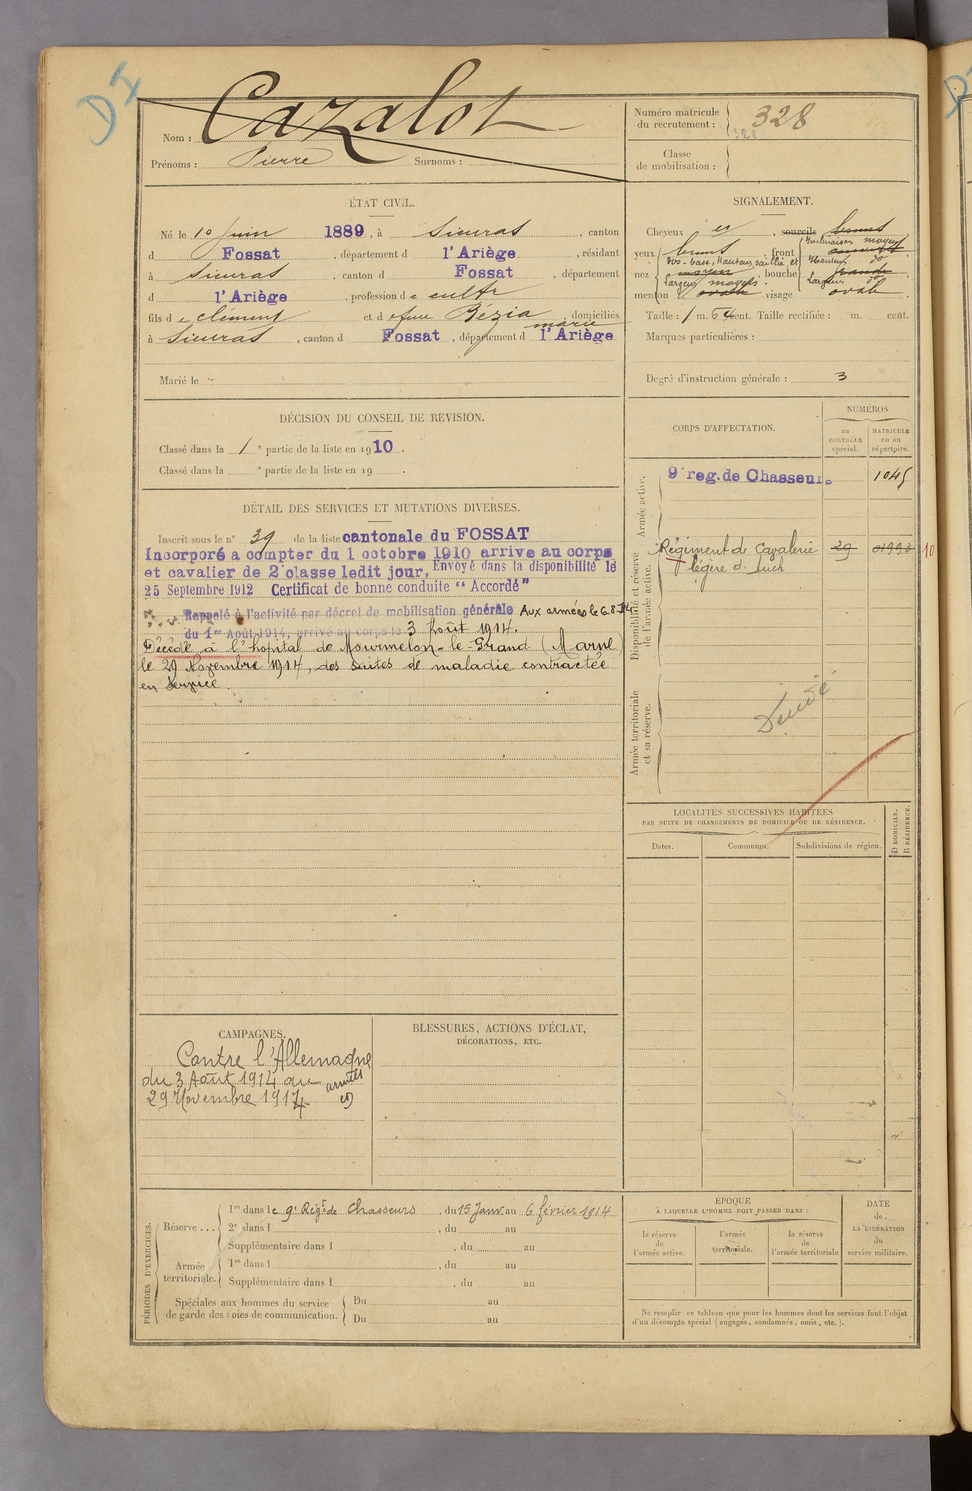 DI
Nom : Cazalot
Prénoms : Pierre Surnoms :
Numéro matricule du recrutement : 328
321
Classe de mobilisation :
ÉTAT CIVIL.
Né le 10 Juin 1889, à Sieuras, canton
d Fossat, département d l'Ariège, résidant
à Sieuras, canton d Fossat, département
d l'Ariège, profession de cultr
fils de Clément et de feue Bézia marie, domiciliés
à Sieuras, canton d Fossat, département d l'Ariège
Marié le
SIGNALEMENT.
Cheveux et, sourcils bruns
yeux bruns, front Inclinaison moyen
Hauteur do
Largeur do
nez Dos-base, Hauteur, saillie, et moyen, bouche grande
Largeur moyens.
menton ovale visage ovale
Taille : 1 m. 64 cent. Taille rectifiée : m. cent.
Marques particulières :
Degré d'instruction générale : 3
DÉCISION DU CONSEIL DE REVISION.
Classé dans la 1e partie de la liste en 1910.
Classé dans la e partie de la liste en 19 .
CORPS D'AFFECTATION.
NUMÉROS
au contrôle spécial.
matricule ou au répertoire.
Armée active.
9e reg. de Chasseurs 1045
Disponibilité et réserve de l'armée active.
Régiment de Cavalerie 29 10
légère d. Auch
Armée territoriale et sa réserve.
Décédé
DÉTAIL DES SERVICES ET MUTATIONS DIVERSES.
Inscrit sous le n° 39 de la liste cantonale du FOSSAT
Incorporé a compter du 1 octobre 1910 arrivé au corps
et cavalier de 2e classe ledit jour. Envoyé dans la disponibilité le
25 Septembre 1912 Certificat de bonne conduite "Accordé"
Rappelé à l'activité par décret de mobilisation générale Aux armées le 6.8.14
du 1er Août 1914, arrivé au corps le 3 Août 1914.
Décédé à l'hôpital de Mourmelon-le-Grand (Marne)
le 29 Novembre 1914, des suites de maladie contractée
en service.
LOCALITÉS SUCCESSIVES HABITÉES
PAR SUITE DE CHANGEMENTS DE DOMICILE OU DE RÉSIDENCE.
Dates.
Communes.
Subdivisions de région.
D DOMICILE.
R RÉSIDENCE.
CAMPAGNES.
Contre l'Allemagne
du 3 Août 1914 au armées
29 Novembre 1914
BLESSURES, ACTIONS D'ÉCLAT,
DÉCORATIONS, ETC.
PÉRIODES D'EXERCICES.
Réserve ... 1re dans le 9e Régt de Chasseurs, du 15 Janv. au 6 février 1914
2e dans l , du au
Supplémentaire dans l , du au
Armée territoriale. 1re dans l , du au
Supplémentaire dans l , du au
Spéciales aux hommes du service de garde des voies de communication. Du au
Du au
EPOQUE
À LAQUELLE L'HOMME DOIT PASSER DANS :
la réserve de l'armée active.
l'armée territoriale.
la réserve de l'armée territoriale
DATE
de
LA LIBÉRATION
du
service militaire.
Ne remplir ce tableau que pour les hommes dont les services font l'objet
d'un décompte spécial (engagés, condamnés, omis, etc.).